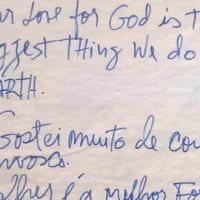 ur Love for God is t
ggest thing we do
EARTH.
Gostei muito de con
nvosco.
é a melhor Fo